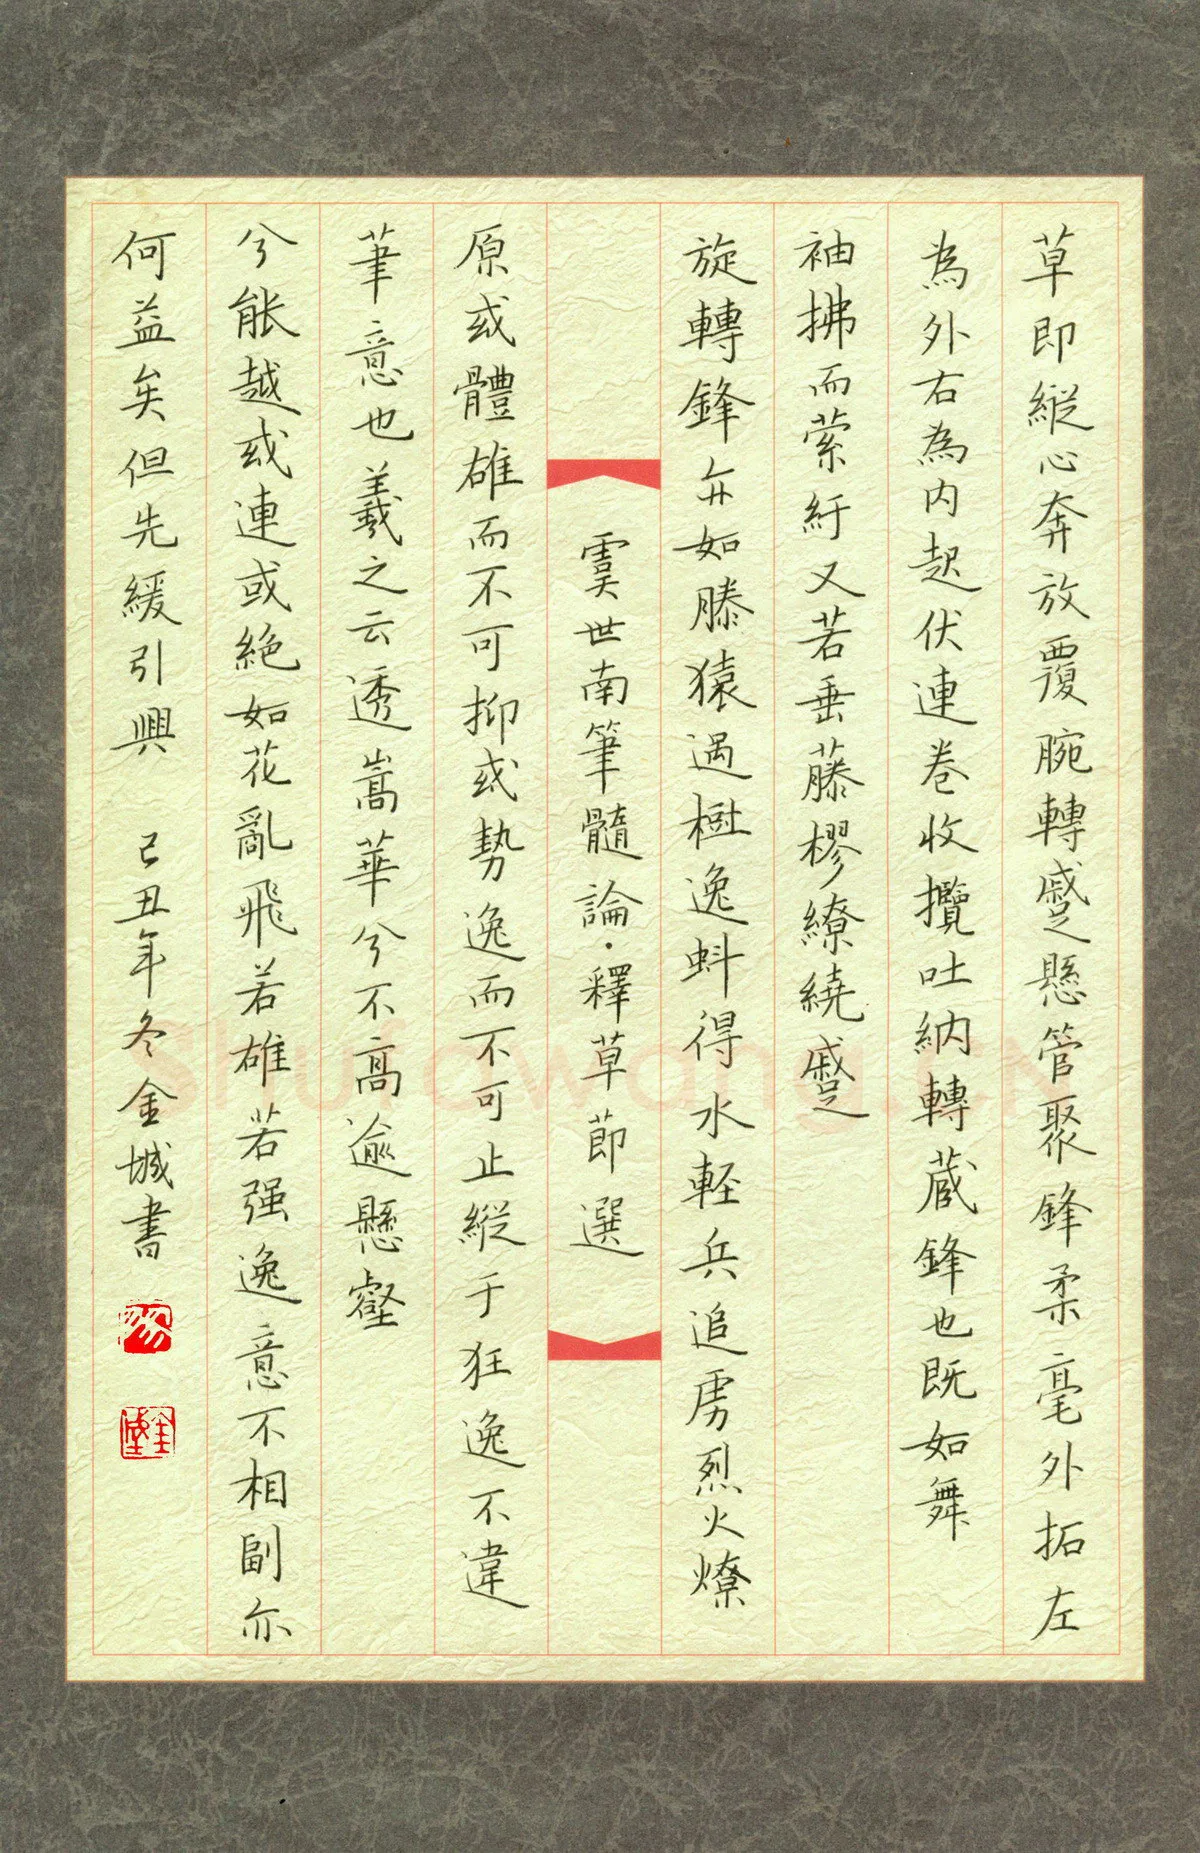 草即縱心奔放覆腕轉蹙懸管聚鋒柔毫外拓左
為外右為内起伏連卷收攬吐納轉蔵鋒也既如舞
袖拂而縈紆又若垂藤樛繚繞蹙
旋轉鋒亦如滕猿過樹逸蚪得水軽兵追虜烈火燎
虞世南筆髓論·釋草節選
原或體雄而不可抑或勢逸而不可止縱于狂逸不違
筆意也羲之云透嵩華兮不高逾懸壑
兮能越或連或絕如花亂飛若雄若强逸意不相副亦
何益矣但先緩引興 己丑年冬金城書
Shufawang.CN